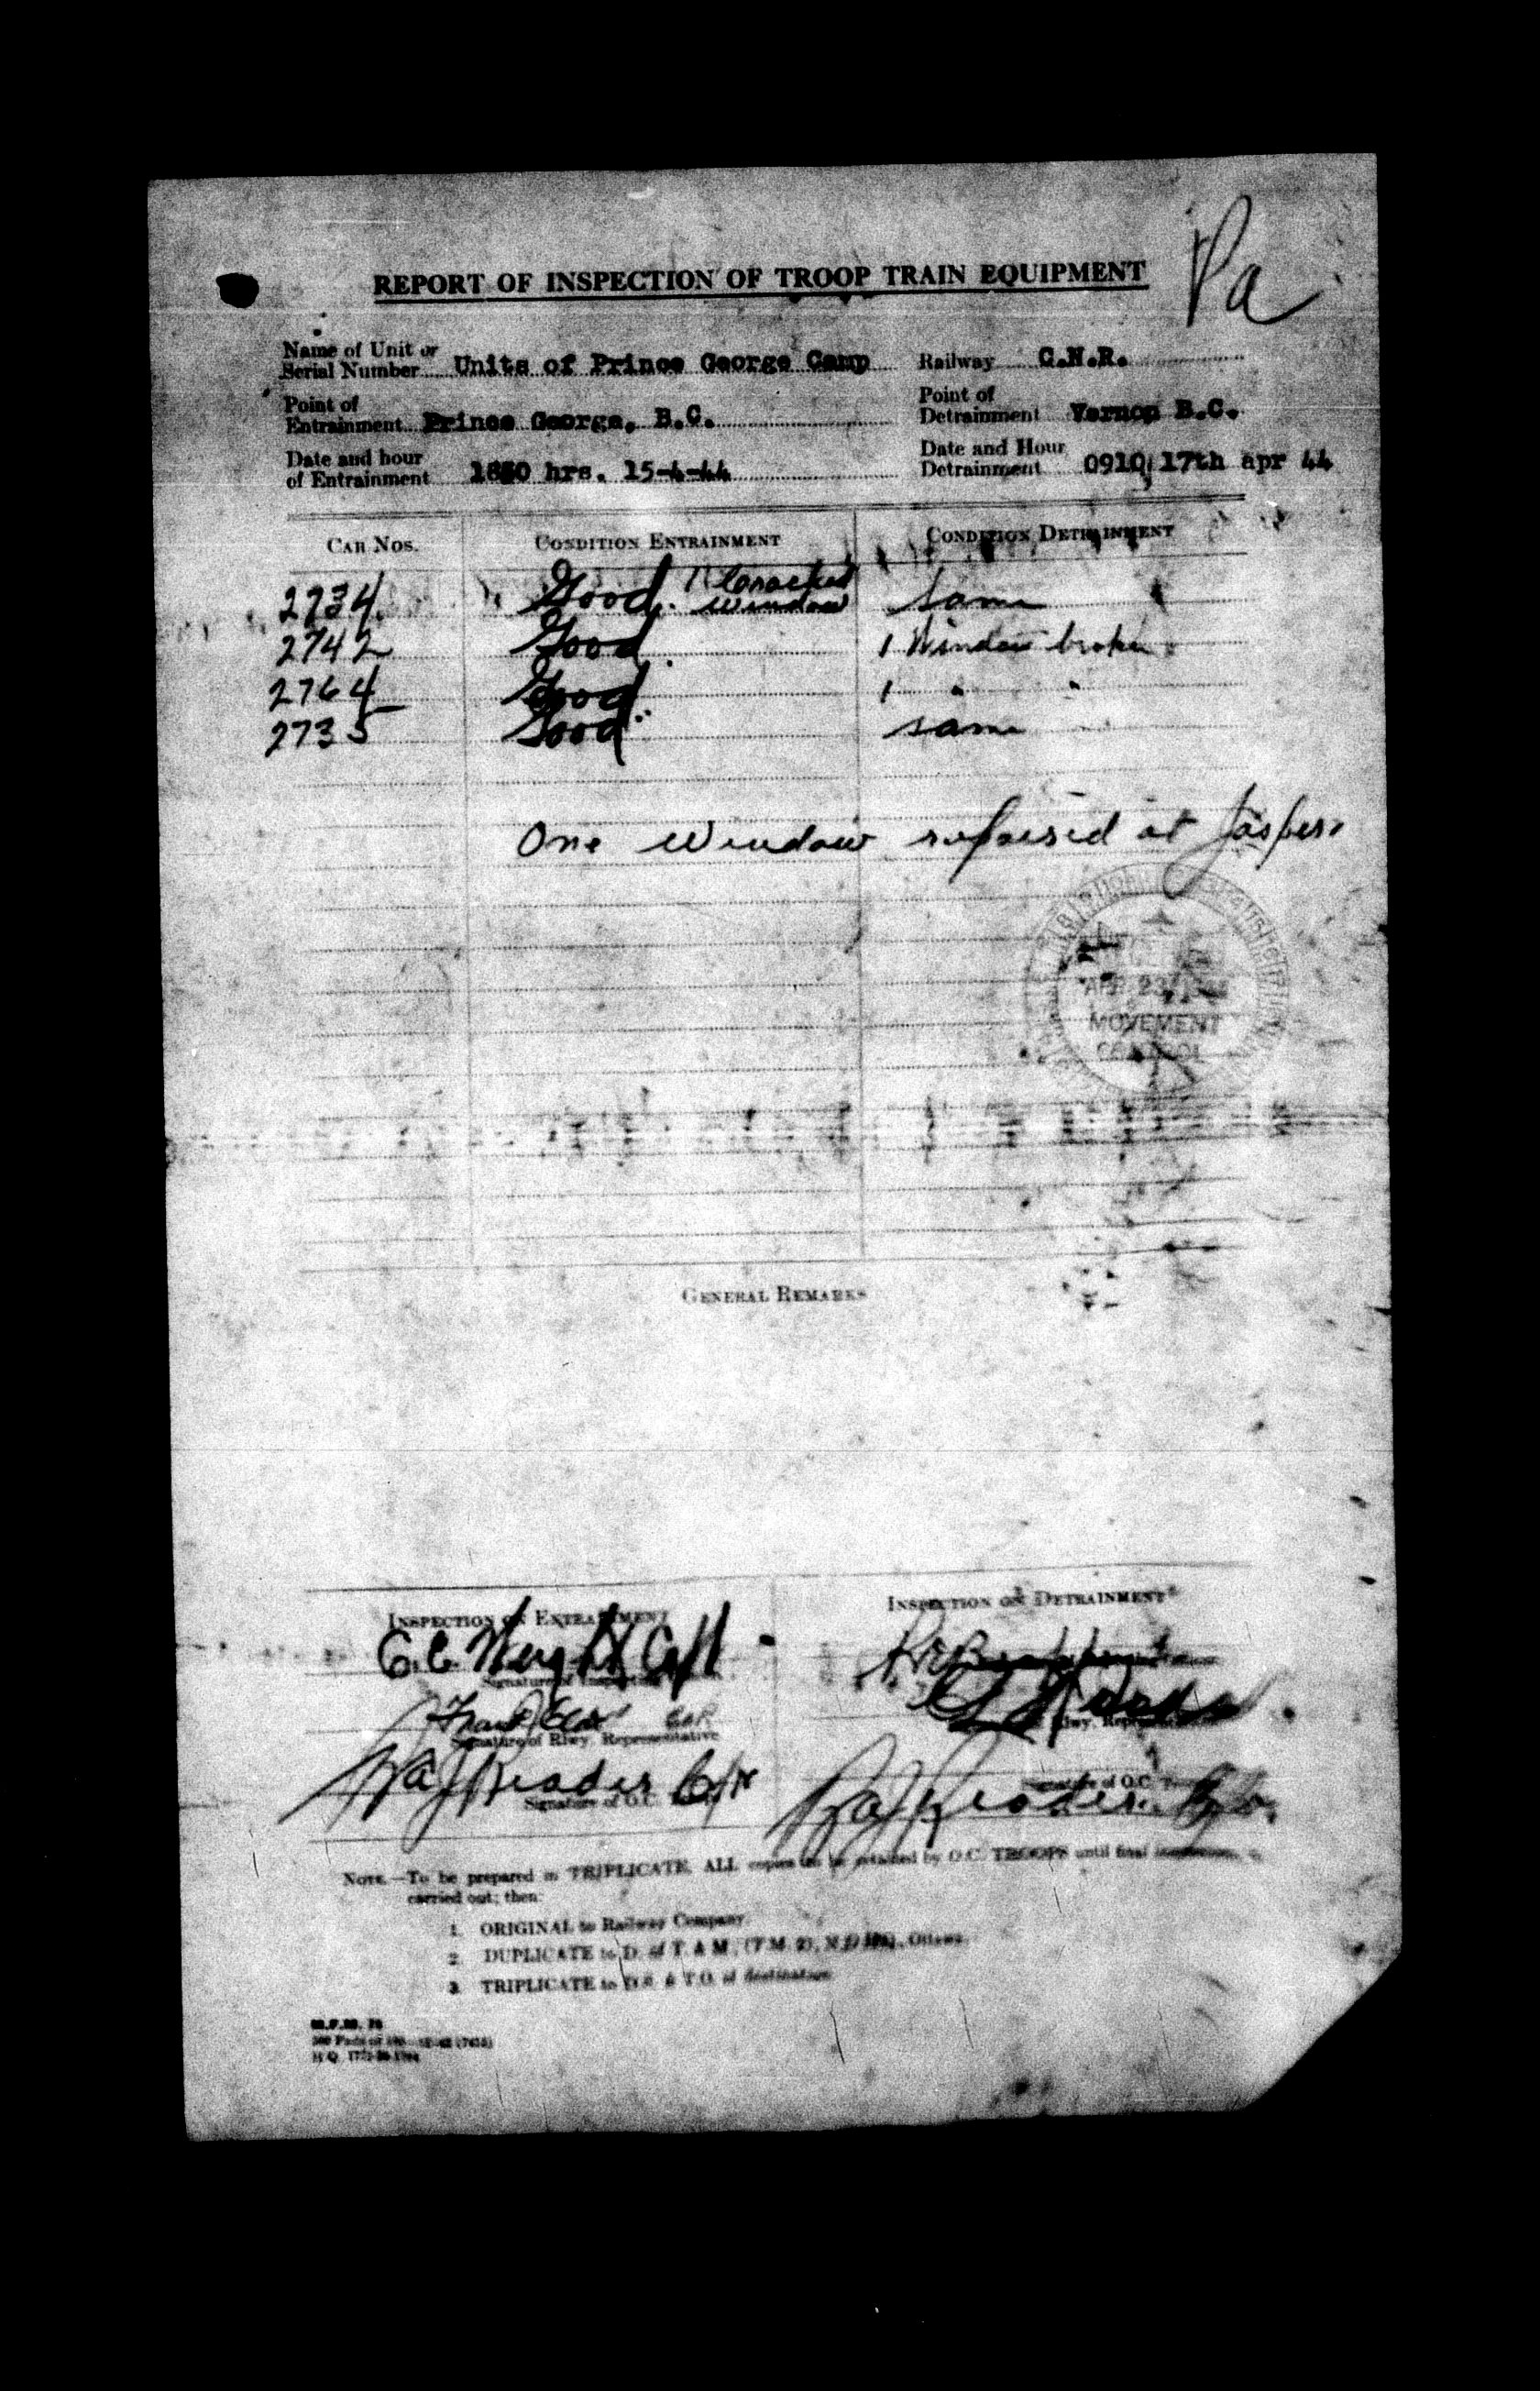 Pa
REPORT OF INSPECTION OF TROOP TRAIN EQUIPMENT
Name of Unit or
Serial Number Units of Prince George Camp Railway C.N.R.
Point of Entrainment Prince George, B.C. Point of Detrainment Vernon B.C.
Date and hour of Entrainment hrs. 15-4-44 Date and Hour Detrainment 0910 17th apr 44
CAR NOS. CONDITION ENTRAINMENT CONDITION DETRAINMENT
2734 Good. 1 Cracked window same
2742 Good. 1 Window broken
2764 Good 1 " "
2735 Good same
One Window repaired at Jasper.
APR 23 1944
MOVEMENT
CONTROL
GENERAL REMARKS
INSPECTION ON ENTRAINMENT INSPECTION ON DETRAINMENT
Signature of Inspecting
Signature of Rlwy. Representative Rlwy. Representative
Signature of O.C. Signature of O.C.
NOTE.—To be prepared in TRIPLICATE. ALL copies to be retained by O.C. TROOPS until final
carried out; then:
1. ORIGINAL to Railway Company.
2. DUPLICATE to D. of T. & M., Ottawa.
3. TRIPLICATE to T.O. of destination